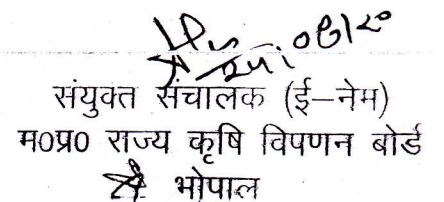 संयुक्त संचालक (ई–नेम)
म०प्र० राज्य कृषि विपणन बोर्ड
भोपाल